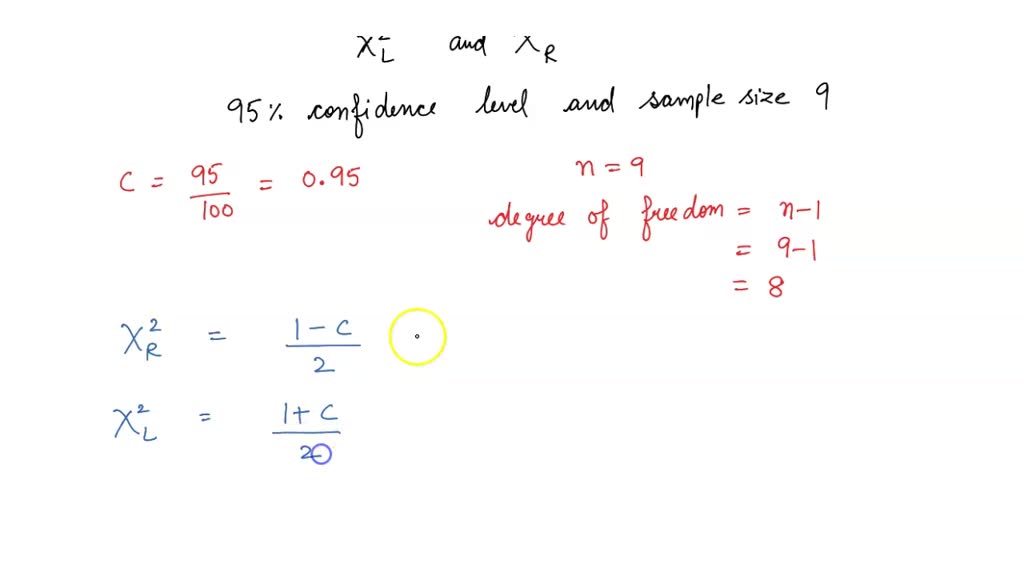 χ²_L and χ_R
95% confidence level and sample size 9
C = 95/100 = 0.95
n = 9
degree of freedom = n-1
= 9-1
= 8
χ²_R = (1-C)/2
χ²_L = (1+C)/2